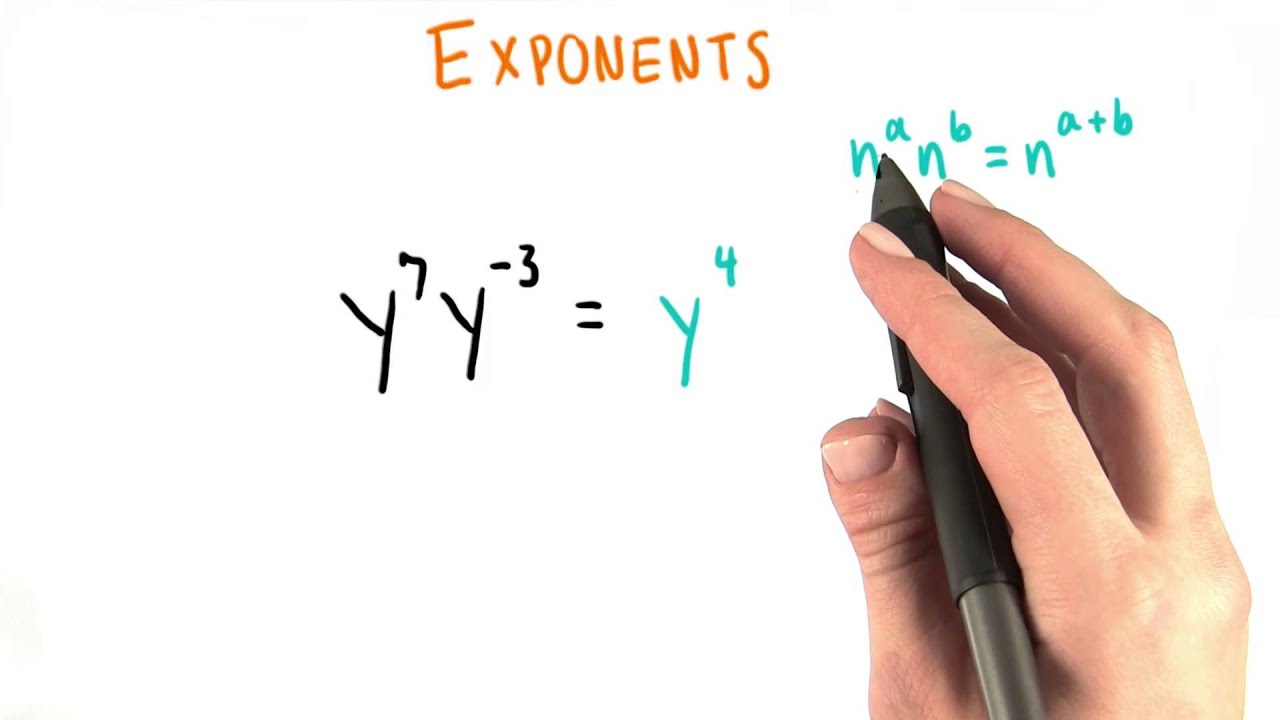 EXPONENTS
nᵃnᵇ = nᵃ⁺ᵇ
y⁷y⁻³ = y⁴